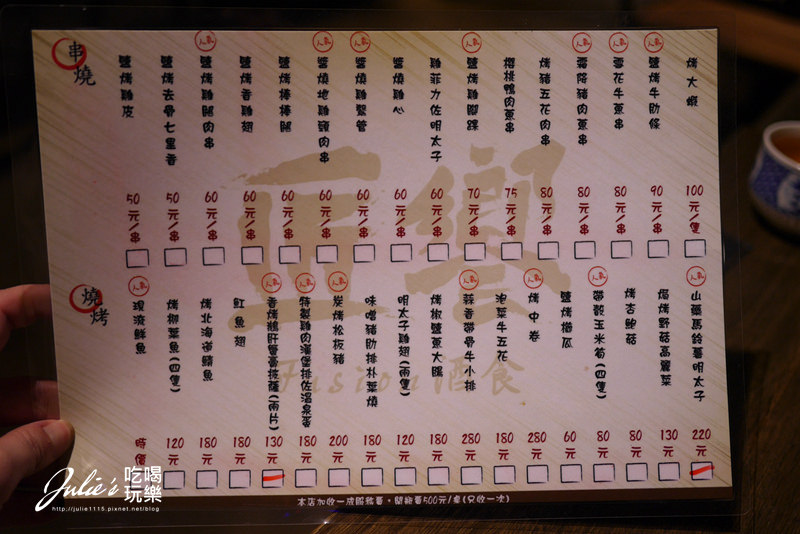 串燒
鹽烤雞皮 50元/串
鹽烤去骨七里香 50元/串
人氣 鹽烤雞腿肉串 60元/串
鹽烤香雞翅 60元/串
鹽烤棒棒腿 60元/串
人氣 醬燒地雞頸肉串 60元/串
人氣 醬燒雞腎管 60元/串
醬燒雞心 60元/串
雞菲力佐明太子 60元/串
人氣 鹽烤雞腳踝 70元/串
櫻桃鴨肉蔥串 75元/串
烤豬五花肉串 80元/串
人氣 霜降豬肉蔥串 80元/串
人氣 雪花牛蔥串 80元/串
人氣 鹽烤牛肋條 90元/串
烤大蝦 100元/隻
燒烤
人氣 現流鮮魚 時價
烤柳葉魚(四隻) 120元
烤北海道鯖魚 180元
魟魚翅 180元
人氣 香烤鵝肝醬薯披薩(兩片) 130元
人氣 特製雞肉漢堡排佐溫泉蛋 180元
人氣 炭烤松板豬 200元
味噌豬肋排朴葉燒 180元
明太子雞翅(兩隻) 120元
烤椒鹽蔥大腸 180元
人氣 蒜香帶骨牛小排 280元
泡菜牛五花 180元
人氣 烤中卷 280元
鹽烤櫛瓜 60元
人氣 帶殼玉米筍(四隻) 80元
烤杏鮑菇 80元
焗烤野菇高麗菜 130元
人氣 山藥馬鈴薯明太子 220元
Fusion酒食
本店加收一成服務費，開瓶費500元/支(只收一次)
Julie's 吃喝玩樂
http://julie1115.pixnet.net/blog